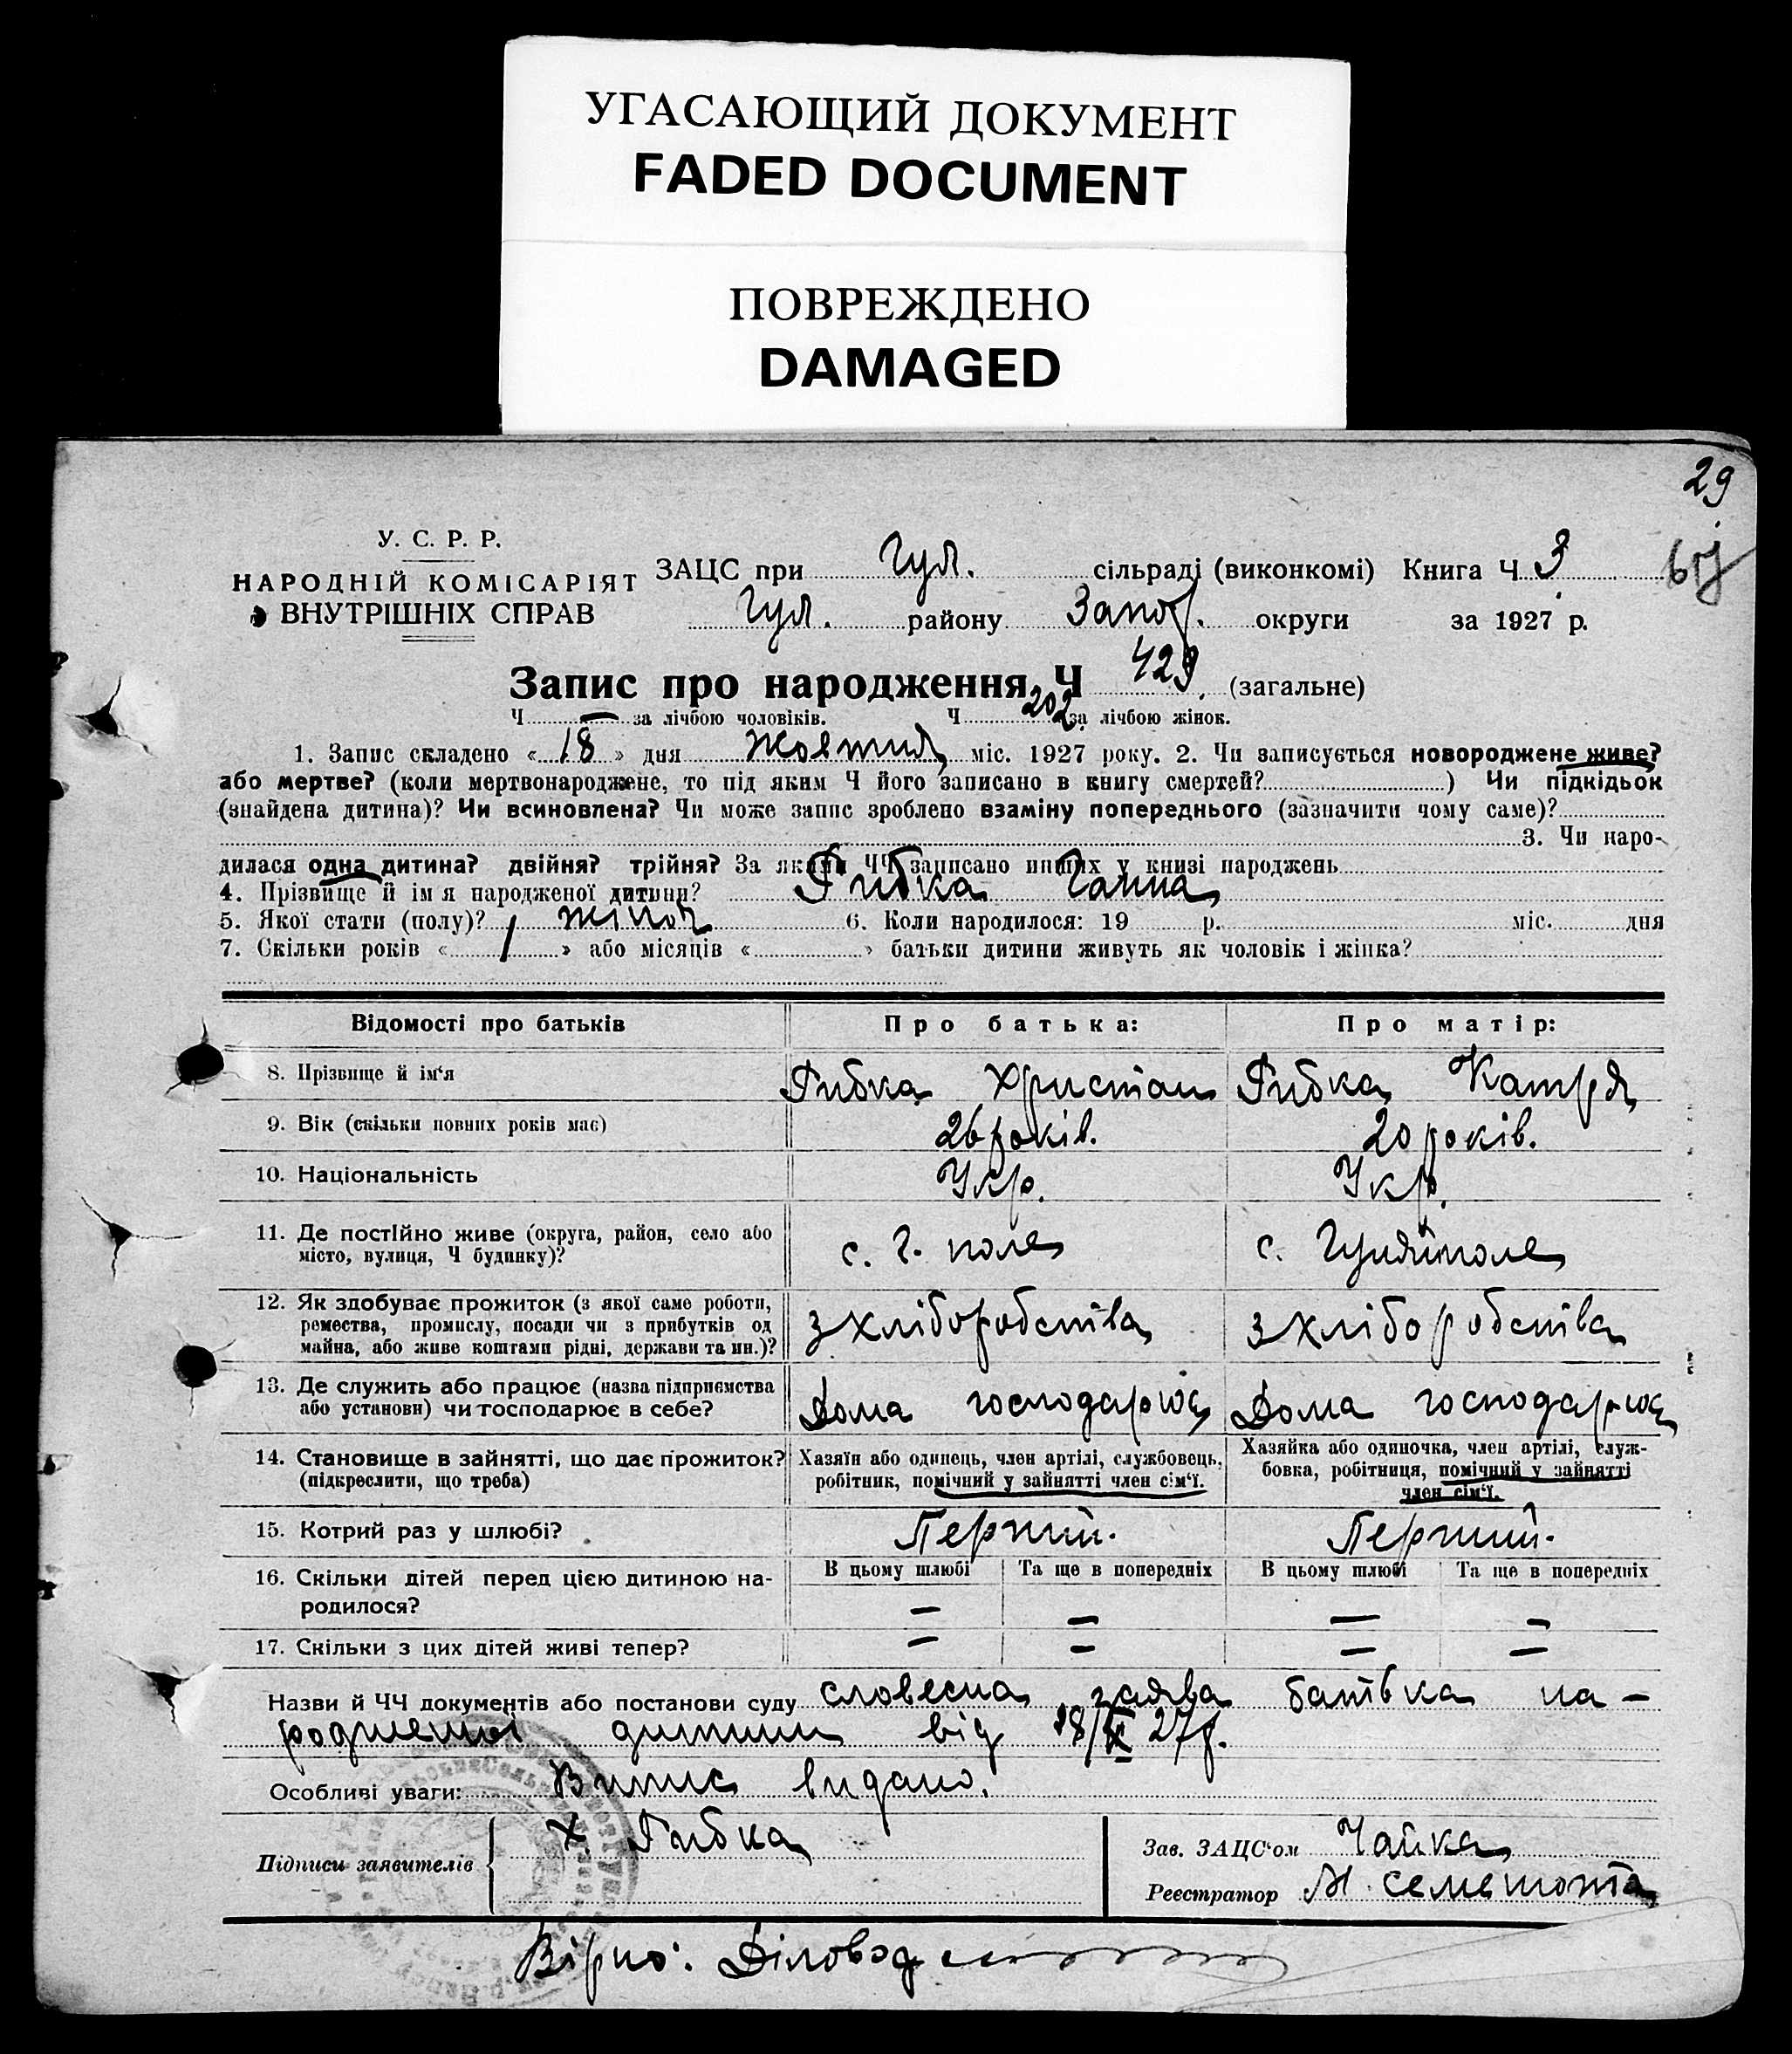 УГАСАЮЩИЙ ДОКУМЕНТ
FADED DOCUMENT
ПОВРЕЖДЕНО
DAMAGED
29
У. С. Р. Р.
НАРОДНІЙ КОМІСАРІЯТ
ВНУТРІШНІХ СПРАВ
ЗАЦС при Гул. сільраді (виконкомі) Книга Ч 3
Гул. району Запор. округи за 1927 р.
Запис про народження Ч 429 (загальне)
Ч — за лічбою чоловіків. Ч 202 за лічбою жінок.
1. Запис складено « 18 » дня жовтня міс. 1927 року. 2. Чи записується новороджене живе?
або мертве? (коли мертвонароджене, то під яким Ч його записано в книгу смертей? ) Чи підкідьок
(знайдена дитина)? Чи всиновлена? Чи може запис зроблено взаміну попереднього (зазначити чому саме)?
3. Чи наро-
дилася одна дитина? двійня? трійня? За якими ЧЧ записано инших у книзі народжень
4. Прізвище й ім я народженої дитини? Рибка Ганна
5. Якої стати (полу)? жіноч 6. Коли народилося: 19 р. міс. дня
7. Скільки років « 1 » або місяців « » батьки дитини живуть як чоловік і жінка?
Відомості про батьків Про батька: Про матір:
8. Прізвище й ім‘я Рибка Христан Рибка Катря
9. Вік (скільки повних років має) 26 років. 20 років.
10. Національність Укр. Укр.
11. Де постійно живе (округа, район, село або
місто, вулиця, Ч будинку)? с. Г. поле с. Гуляйполе
12. Як здобуває прожиток (з якої саме роботи,
ремества, промислу, посади чи з прибутків од
майна, або живе коштами рідні, держави та ин.)? з хліборобства з хліборобства
13. Де служить або працює (назва підприємства
або установи) чи господарює в себе? Дома господарює Дома господарює
14. Становище в зайнятті, що дає прожиток?
(підкреслити, що треба)
Хазяїн або одинець, член артілі, службовець,
робітник, помічний у зайнятті член сім‘ї.
Хазяйка або одиночка, член артілі, служ-
бовка, робітниця, помічний у зайнятті
член сім‘ї.
15. Котрий раз у шлюбі? Перший. Перший.
16. Скільки дітей перед цією дитиною на-
родилося?
В цьому шлюбі Та ще в попередніх В цьому шлюбі Та ще в попередніх
— — — —
17. Скільки з цих дітей живі тепер? — — — —
Назви й ЧЧ документів або постанови суду словесна заява батька на-
родженої дитини від 18/X 27 р.
Особливі уваги: Випис видано.
Підписи заявителів х Рибка
Зав. ЗАЦС‘ом Чайка
Реєстратор
Вірно: Діловод